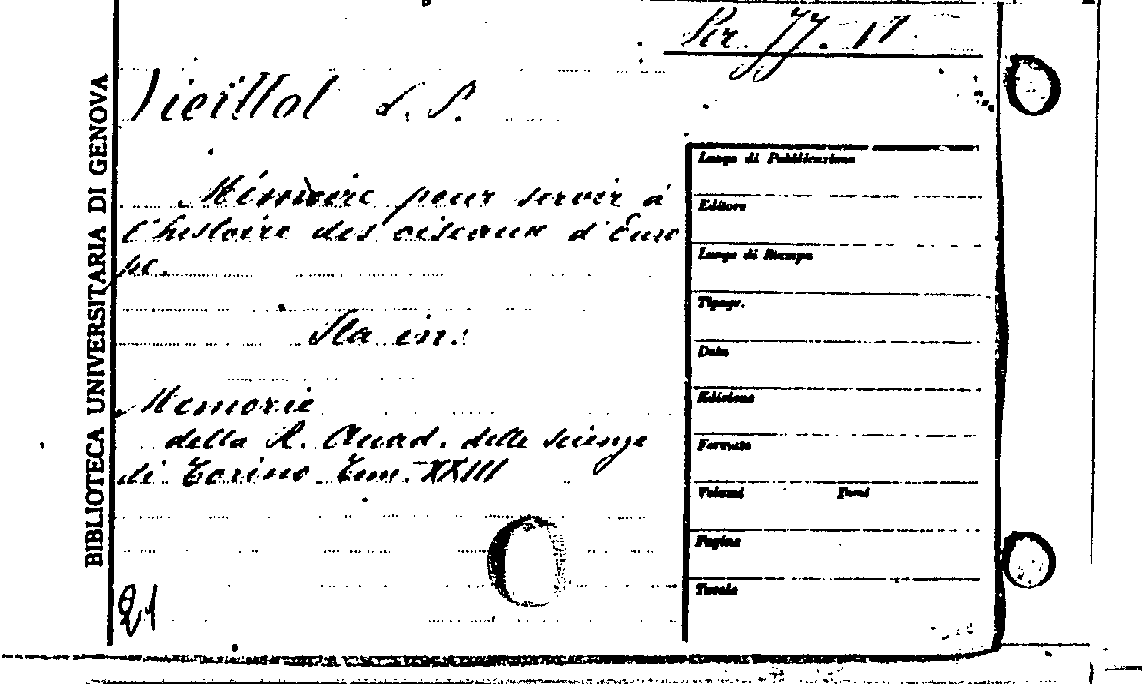 Per. JJ. 17
Vieillot L. P.
Mémoire pour servir à
l'histoire des oiseaux d'Euro
pe.
Sta in:
Memorie
della R. Accad. delle scienze
di Torino Tom. XXIII
21
BIBLIOTECA UNIVERSITARIA DI GENOVA
Luogo di Pubblicazione
Editore
Luogo di Stampa
Tipogr.
Data
Edizione
Formato
Volumi Tomi
Pagine
Tavole